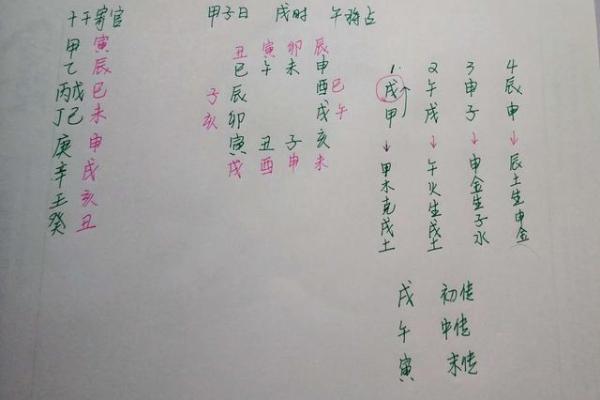 十干寄官
甲寅
乙辰
丙戊巳
丁己未
庚申
辛戌
壬亥
癸丑
甲子日 戌时 午将占
丑寅卯辰
巳午未申
子辰 酉巳
亥卯 戌午
寅丑子亥
戌酉申未
1 戌甲 ↓ 甲木克戌土
2 午戌 ↓ 午火生戌土
3 申子 ↓ 申金生子水
4 辰申 ↓ 辰土生申金
戌 初传
午 中传
寅 末传